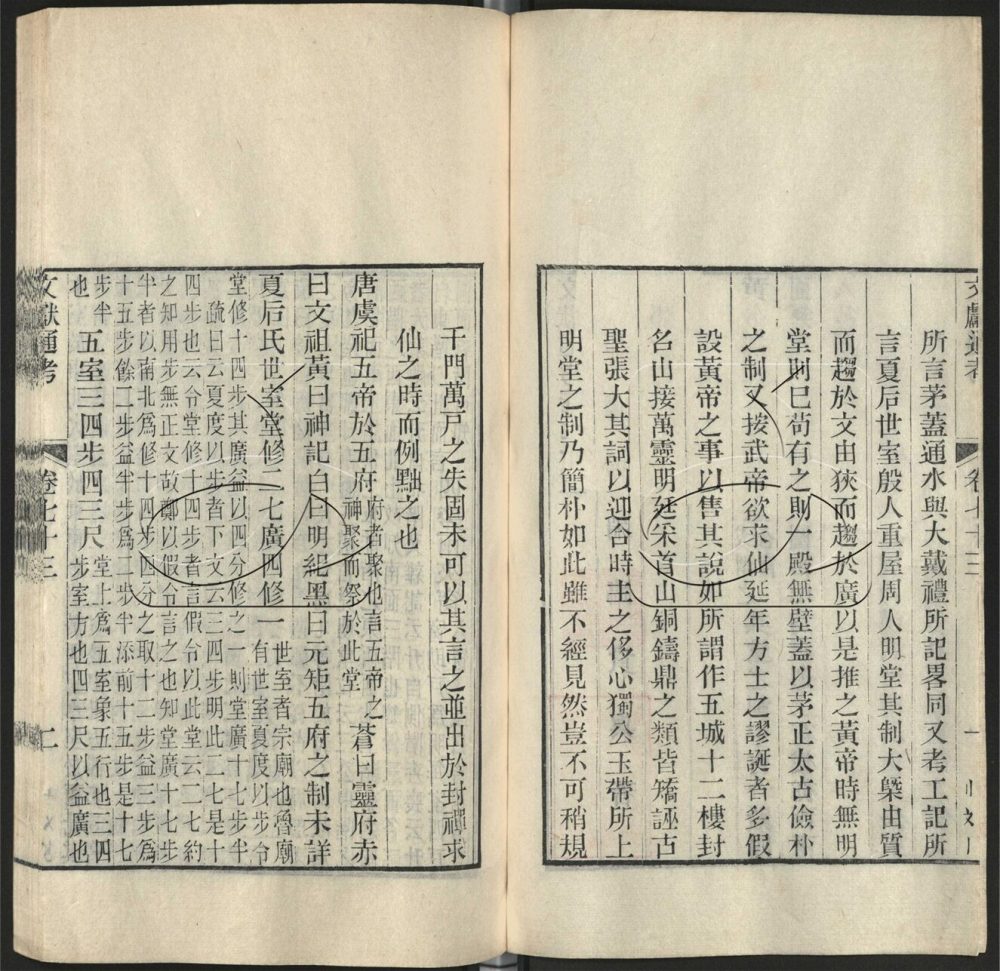 文獻通考
卷七十三
一
所言茅蓋通水與大戴禮所記畧同又考工記所
言夏后世室殷人重屋周人明堂其制大槩由質
而趨於文由狹而趨於廣以是推之黃帝時無明
堂則已苟有之則一殿無壁蓋以茅正太古儉朴
之制又接武帝欲求仙延年方士之謬誕者多假
設黃帝之事以售其說如所謂作五城十二樓封
名山接萬靈明廷采首山銅鑄鼎之類皆矯誣古
聖張大其詞以迎合時主之侈心獨公玉帶所上
明堂之制乃簡朴如此雖不經見然豈不可稍規
千門萬戸之失固未可以其言之並出於封禪求
仙之時而例黜之也
唐虞祀五帝於五府府者聚也言五帝之神聚而祭於此堂蒼曰靈府赤
曰文祖黃曰神記白曰明紀黑曰元矩五府之制未詳
夏后氏世室堂修二七廣四修一世室者宗廟也魯廟有世室夏度以步今
堂修十四步其廣益以四分修之一則堂廣十七步半
疏曰云夏度以步者下文云三四步明此二七是十
四步也云令堂修十四步者言假令以此堂云二七約
之知用步無正文故鄭以假令言之也知堂廣十七步
半者以南北爲修十四步四分之取十二步益三步爲
十五步餘二步益半步爲二步半添前十五步是十七
步半也五室三四步四三尺堂上爲五室象五行也三四步室方也四三尺以益廣也
文獻通考
卷七十三
二